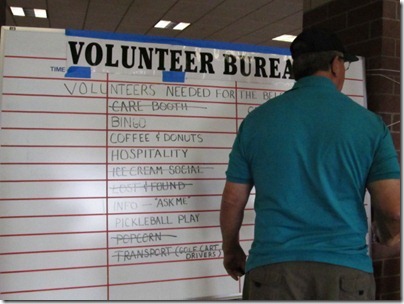 VOLUNTEER BUREA
TIME
VOLUNTEERS NEEDED FOR THE BEL
CARE BOOTH
BINGO
COFFEE & DONUTS
HOSPITALITY
ICE CREAM SOCIAL
LOST & FOUND
INFO - "ASK ME"
PICKLEBALL PLAY
POPCORN
TRANSPORT (GOLF CART DRIVERS)